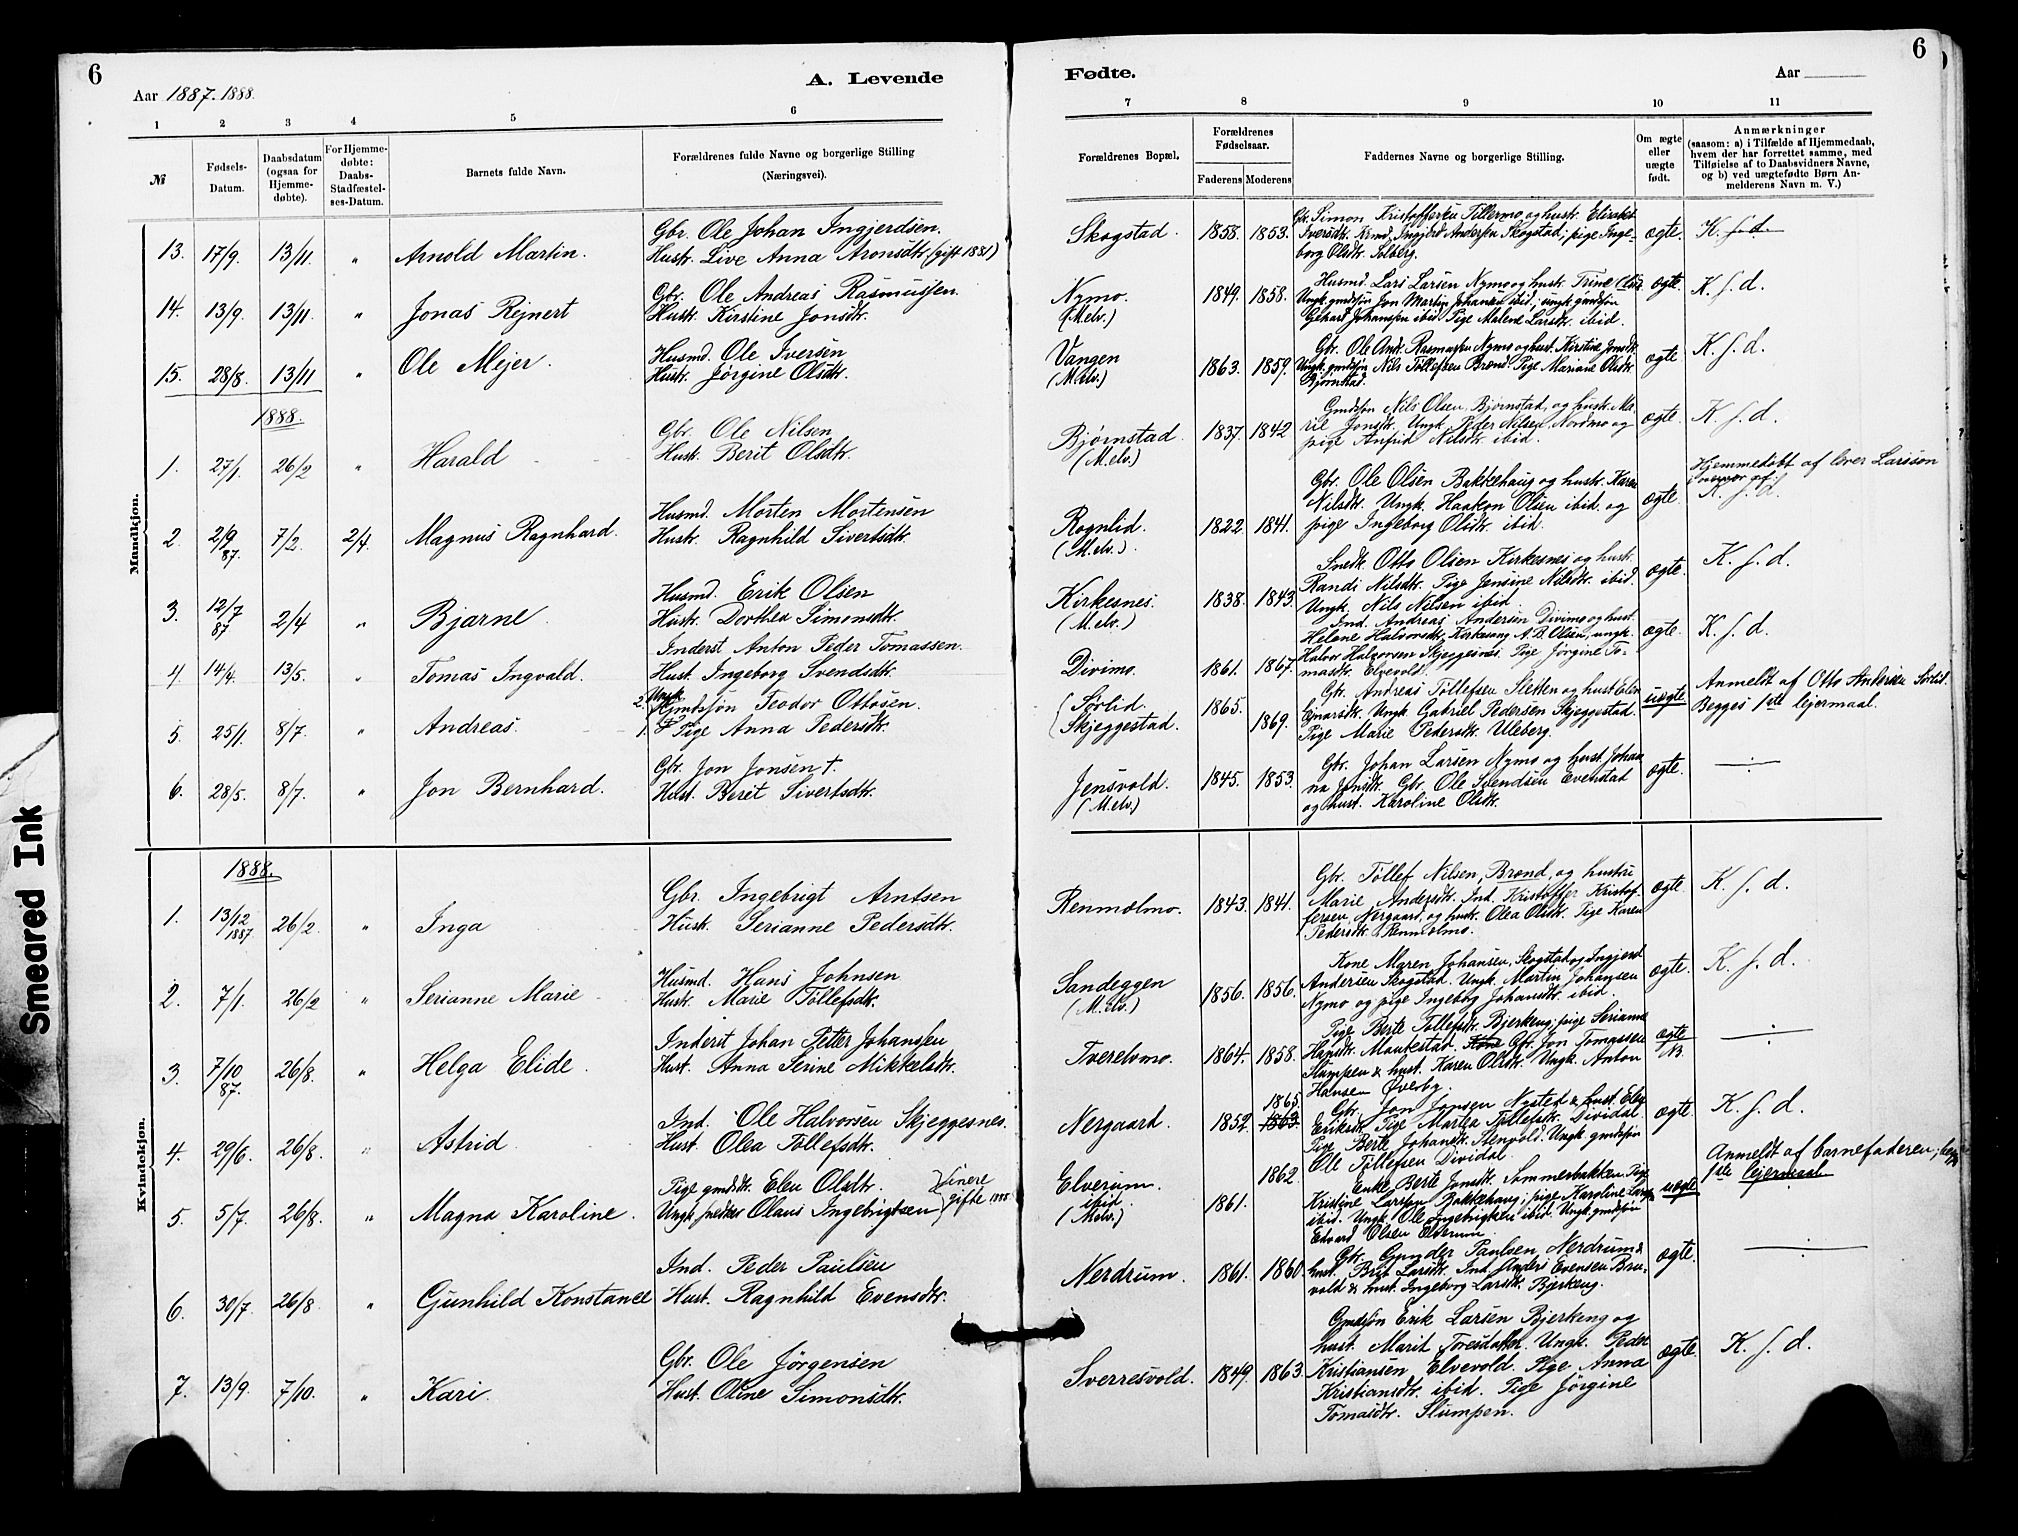 6
A. Levende
Aar 1887. 1888.
1 2 3 4 5 6
№
Fødsels-
Datum.
Daabsdatum
(ogsaa for
Hjemme-
døbte).
For Hjemme-
døbte:
Daabs-
Stadfæstel-
ses-Datum.
Barnets fulde Navn.
Forældrenes fulde Navne og borgerlige Stilling
(Næringsvei).
Mandkjøn.
Gbr. Ole Johan Ingjerdsen.
13. 17/9. 13/11. " Arnold Martin. Hustr. Live Anna Aronsdtr (gift 1881)
Gbr. Ole Andreas Rasmussen.
14. 13/9. 13/11. " Jonas Rejnert Hustr. Kirstine Jonsdtr.
Husmd. Ole Iversen
15. 28/8. 13/11 " Ole Mejer. Hustr. Jørgine Olsdtr.
1888.
Gbr. Ole Nilsen
1. 27/1. 26/2 " Harald Hustr. Berit Olsdtr.
Husmd. Morten Mortensen
2. 2/9 87. 7/2. 2/4. Magnus Ragnhard. Hustr. Ragnhild Sivertsdtr.
Husmd. Erik Olsen
3. 12/7 87 2/4 " Bjarne. Hustr. Dorthea Simonsdtr.
Inderst Anton Peder Tomassen.
4. 14/4. 13/5. " Tomas Ingvald. Hust. Ingeborg Svendsdtr.
2. Ungk. Gmdsøn Teodor Ottosen.
5. 25/1. 8/7. " Andreas. 1. Pige Anna Pedersdtr.
Gbr. Jon Jonsen †.
6. 28/5. 8/7. " Jon Bernhard. Hust. Beret Sivertsdtr.
Kvindekjøn.
1888.
Gbr. Ingebrigt Arntsen
1. 13/12 1887. 26/2. " Inga Hustr. Serianne Pedersdtr.
Husmd. Hans Johnsen
2. 7/1. 26/2 " Serianne Marie Hustr. Marie Tollefsdtr.
Inderst Johan Petter Johanssen
3. 7/10 87. 26/8. " Helga Elide. Hust. Anna Serine Mikkelsdtr.
Ind. Ole Halvorsen Skjeggesnes.
4. 29/6. 26/8. " Astrid. Hust. Olea Tollefsdtr.
Pige gmdsdtr. Elen Olsdtr. } senere
5. 5/7. 26/8. " Magna Karoline. Ungk. snedker Olaus Ingebrigtsen } gifte 1888
Ind. Peder Paulsen
6. 30/7. 26/8. " Gunhild Konstance Hust. Ragnhild Evensdtr.
Gbr. Ole Jørgensen
7. 13/9. 7/10. " Kari. Hust. Oline Simonsdtr.
6
Fødte.
Aar
7 8 9 10 11
Forældrenes Bopæl.
Forældrenes
Fødselsaar.
Faderens Moderens
Faddernes Navne og borgerlige Stilling.
Om ægte
eller
uægte
født.
Anmærkninger
(saasom: a) i Tilfælde af Hjemmedaab,
hvem der har forrettet samme, med
Tilføielse af to Daabsvidners Navne,
og b) ved uægtefødte Børn An-
melderens Navn m. V.)
Gbr. Simon Kristoffersen Tillermo og hustr. Elisabet
Skogstad. 1858. 1853. Iversdtr. Kmd. Ingjerd Andersen Skogstad; pige Inge- ægte. K. f. d.
borg Olsdtr. Solberg.
Husmd. Lars Larsen Nymo og hustr. Trine
Nymo. 1849. 1858. Ungk. gmdsøn Jon Martin Johansen ibid; ungk. gmdsøn ægte. K. f. d.
(M.elv.) Gehart Johanssen ibid. Pige Malene Larsdtr. ibid.
Gbr. Ole Andr. Rasmussen Nymo og hust. Kirstine Jonsdtr.
Vangen 1863. 1859. Ungk. gmdsøn Nils Tollefsen Brend. Pige Mariane Olsdtr. ægte. K. f. d.
(M.elv.) Bjørnstad.
Gmdsøn Nils Olsen, Bjørnstad, og hustr. Ma-
Bjørnstad. 1837. 1842 ril Jonsdtr. Ungk. Peder Nilsen, Nordmo og ægte. K. f. d.
(M.elv.) pige Anfrid Nilsdtr ibid.
Gbr. Ole Olsen Bakkehaug og hustr. Karen Hjemmedøbt af lærer Larsson
Rognlid. 1822. 1841. Nilsdtr. Ungk. Haakon Olsen ibid. og ægte. K. f. d.
(M.elv.). pige Ingeborg Olsdtr. ibid.
Snedk. Otto Olsen Kirkesnes og hustr.
Kirkesnes. 1838. 1843. Randi Nilsdtr. Pige Jensine Nilsdtr. ibid. ægte. K. f. d.
(M.elv.) Ungk. Nils Nilsen ibid.
Ind. Andreas Andersen Divimo og hust.
Helene Halvorsdtr. Kirkesang. A. B. Olsen, ungk. ægte. K. f. d.
Divimo. 1861. 1867. Halvor Halvorsen Skjeggesnes. Pige Jørgine To-
masdtr. Elvevold.
Gbr. Andreas Tollefsen Sletten og hust. Elen
Sørlid. 1865. Ejnarsdtr. Ungk. Gabriel Pedersen Skjeggestad. uægte Anmeldt af Otto Andersen Sørlid.
Skjeggestad. 1869. Pige Marie Pedersdtr. Uleberg. Begges 1ste lejermaal.
Gbr. Johan Larsen Nymo og hust. Johan-
Jensvold. 1845. 1853. na Jonsdtr. Gbr. Ole Svendsen Evenstad ægte.
(M.elv.) og hust. Karoline Olsdtr.
Gbr. Tollef Nilsen, Brend, og hustru
Renmolmo. 1843. 1841. Marie Andersdtr. Ind. Kristoffer Kristof- ægte. K. f. d.
fersen, Nergaard, og hustr. Olea Olsdtr. Pige Karen
Pedersdtr. Renmolmo.
Kone Maren Johansen, Skogstad og Ingjerd
Sandeggen 1856. 1856. Andersen Skogstad. Ungk. Martin Johansen ægte. K. f. d.
(M.elv.) Nymo og pige Ingeborg Johansdtr. ibid.
Pige Berte Tollefsdtr. Bjerkeng; pige Serianne
Tverelvmo. 1864. 1858. Hansdtr. Maukestad. Gbr. Jon Tomassen ægte NB.
Slumpen & hust. Karen Olsdtr. Ungk. Anton
Hansen Øverby.
1865. Gbr. Jon Jonsen Nysted & hust. Elen
Nergaard. 1852. 1863. Eriksdtr. Pige Martea Tollefsdtr. Dividal. ægte. K. f. d.
Pige Berte Johansdtr. Stenvold. Ungk. gmdsøn
Ole Tollefsen Dividal.
Elverum. 1862. Enke Berte Jonsdtr. Sommerbakken. Pige Anmeldt af barnefaderen;
ibid. 1861. Kristine Larssen Bakkehaug; pige Karoline uægte 1ste lejermaal.
(M.elv.) ibid. Ungk. Ole Ingebrigtsen ibid. Ungk. gmdsøn
Edvard Olsen Elverum.
Gbr. Gunder Paulsen, Nerdrum &
Nerdrum. 1861. 1860. hust. Brit Larsdtr. Ind. Anders Evensen Bru- ægte.
vold & hust. Ingeborg Larsdtr. Bjerkeng.
Gmdsøn Erik Larsen Bjerkeng og
hust. Marit Toresdatter. Ungk. Peder
Sverresvold. 1849. 1863. Kristiansen Elvevold. Pige Anna ægte. K. f. d.
Kristiansdtr. ibid. Pige Jørgine
Tomasdtr. Slumpen.
Smeared Ink